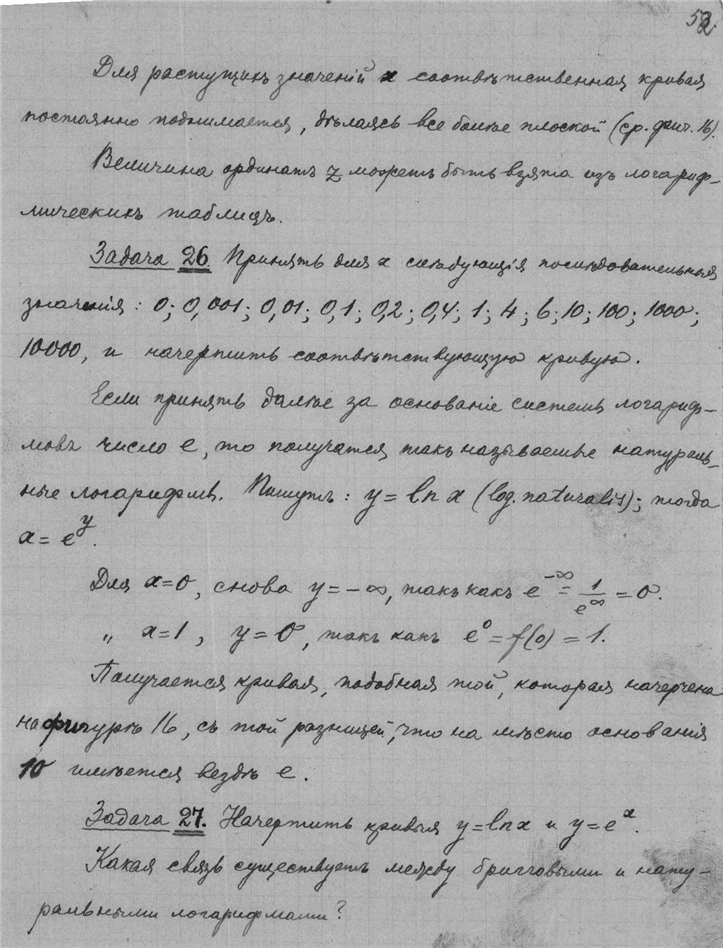 52.
Для растущихъ значеній x соотвѣтственная кривая
постоянно поднимается, дѣлаясь все болѣе плоской (ср. фиг. 16).
Величина ординатъ z можетъ быть взята изъ логариф-
мическихъ таблицъ.
Задача 26. Принять для x слѣдующія послѣдовательныя
значенія: 0; 0,001; 0,01; 0,1; 0,2; 0,4; 1; 4; 6; 10; 100; 1000;
10000, и начертить соотвѣтствующую кривую.
Если принять далѣе за основаніе системы логариф-
мовъ число e, то получатся такъ называемые натураль-
ные логарифмы. Пишутъ: y = ln x (log. naturalis); тогда
x = e^y.
Для x=0, снова y = -∞, такъ какъ e^{-∞} = 1/e^∞ = 0.
„ x=1, y = 0, такъ какъ e^0 = f(0) = 1.
Получается кривая, подобная той, которая начерчена
на фигурѣ 16, съ той разницей, что на мѣсто основанія
10 имѣется вездѣ e.
Задача 27. Начертить кривыя y=ln x и y=e^x.
Какая связь существуетъ между бригговыми и нату-
ральными логарифмами?